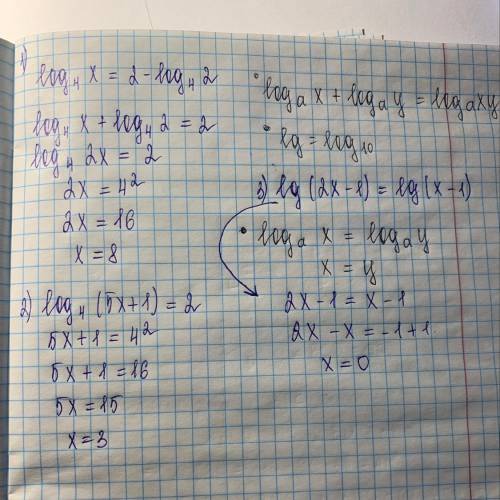 1)
log₄ x = 2 - log₄ 2
log₄ x + log₄ 2 = 2
log₄ 2x = 2
2x = 4²
2x = 16
x = 8
2) log₄ (5x+1) = 2
5x+1 = 4²
5x+1 = 16
5x = 15
x = 3
• logₐ x + logₐ y = logₐ xy
• lg = log₁₀
3) lg (2x-1) = lg (x-1)
• logₐ x = logₐ y
x = y
2x-1 = x-1
2x - x = -1+1
x = 0